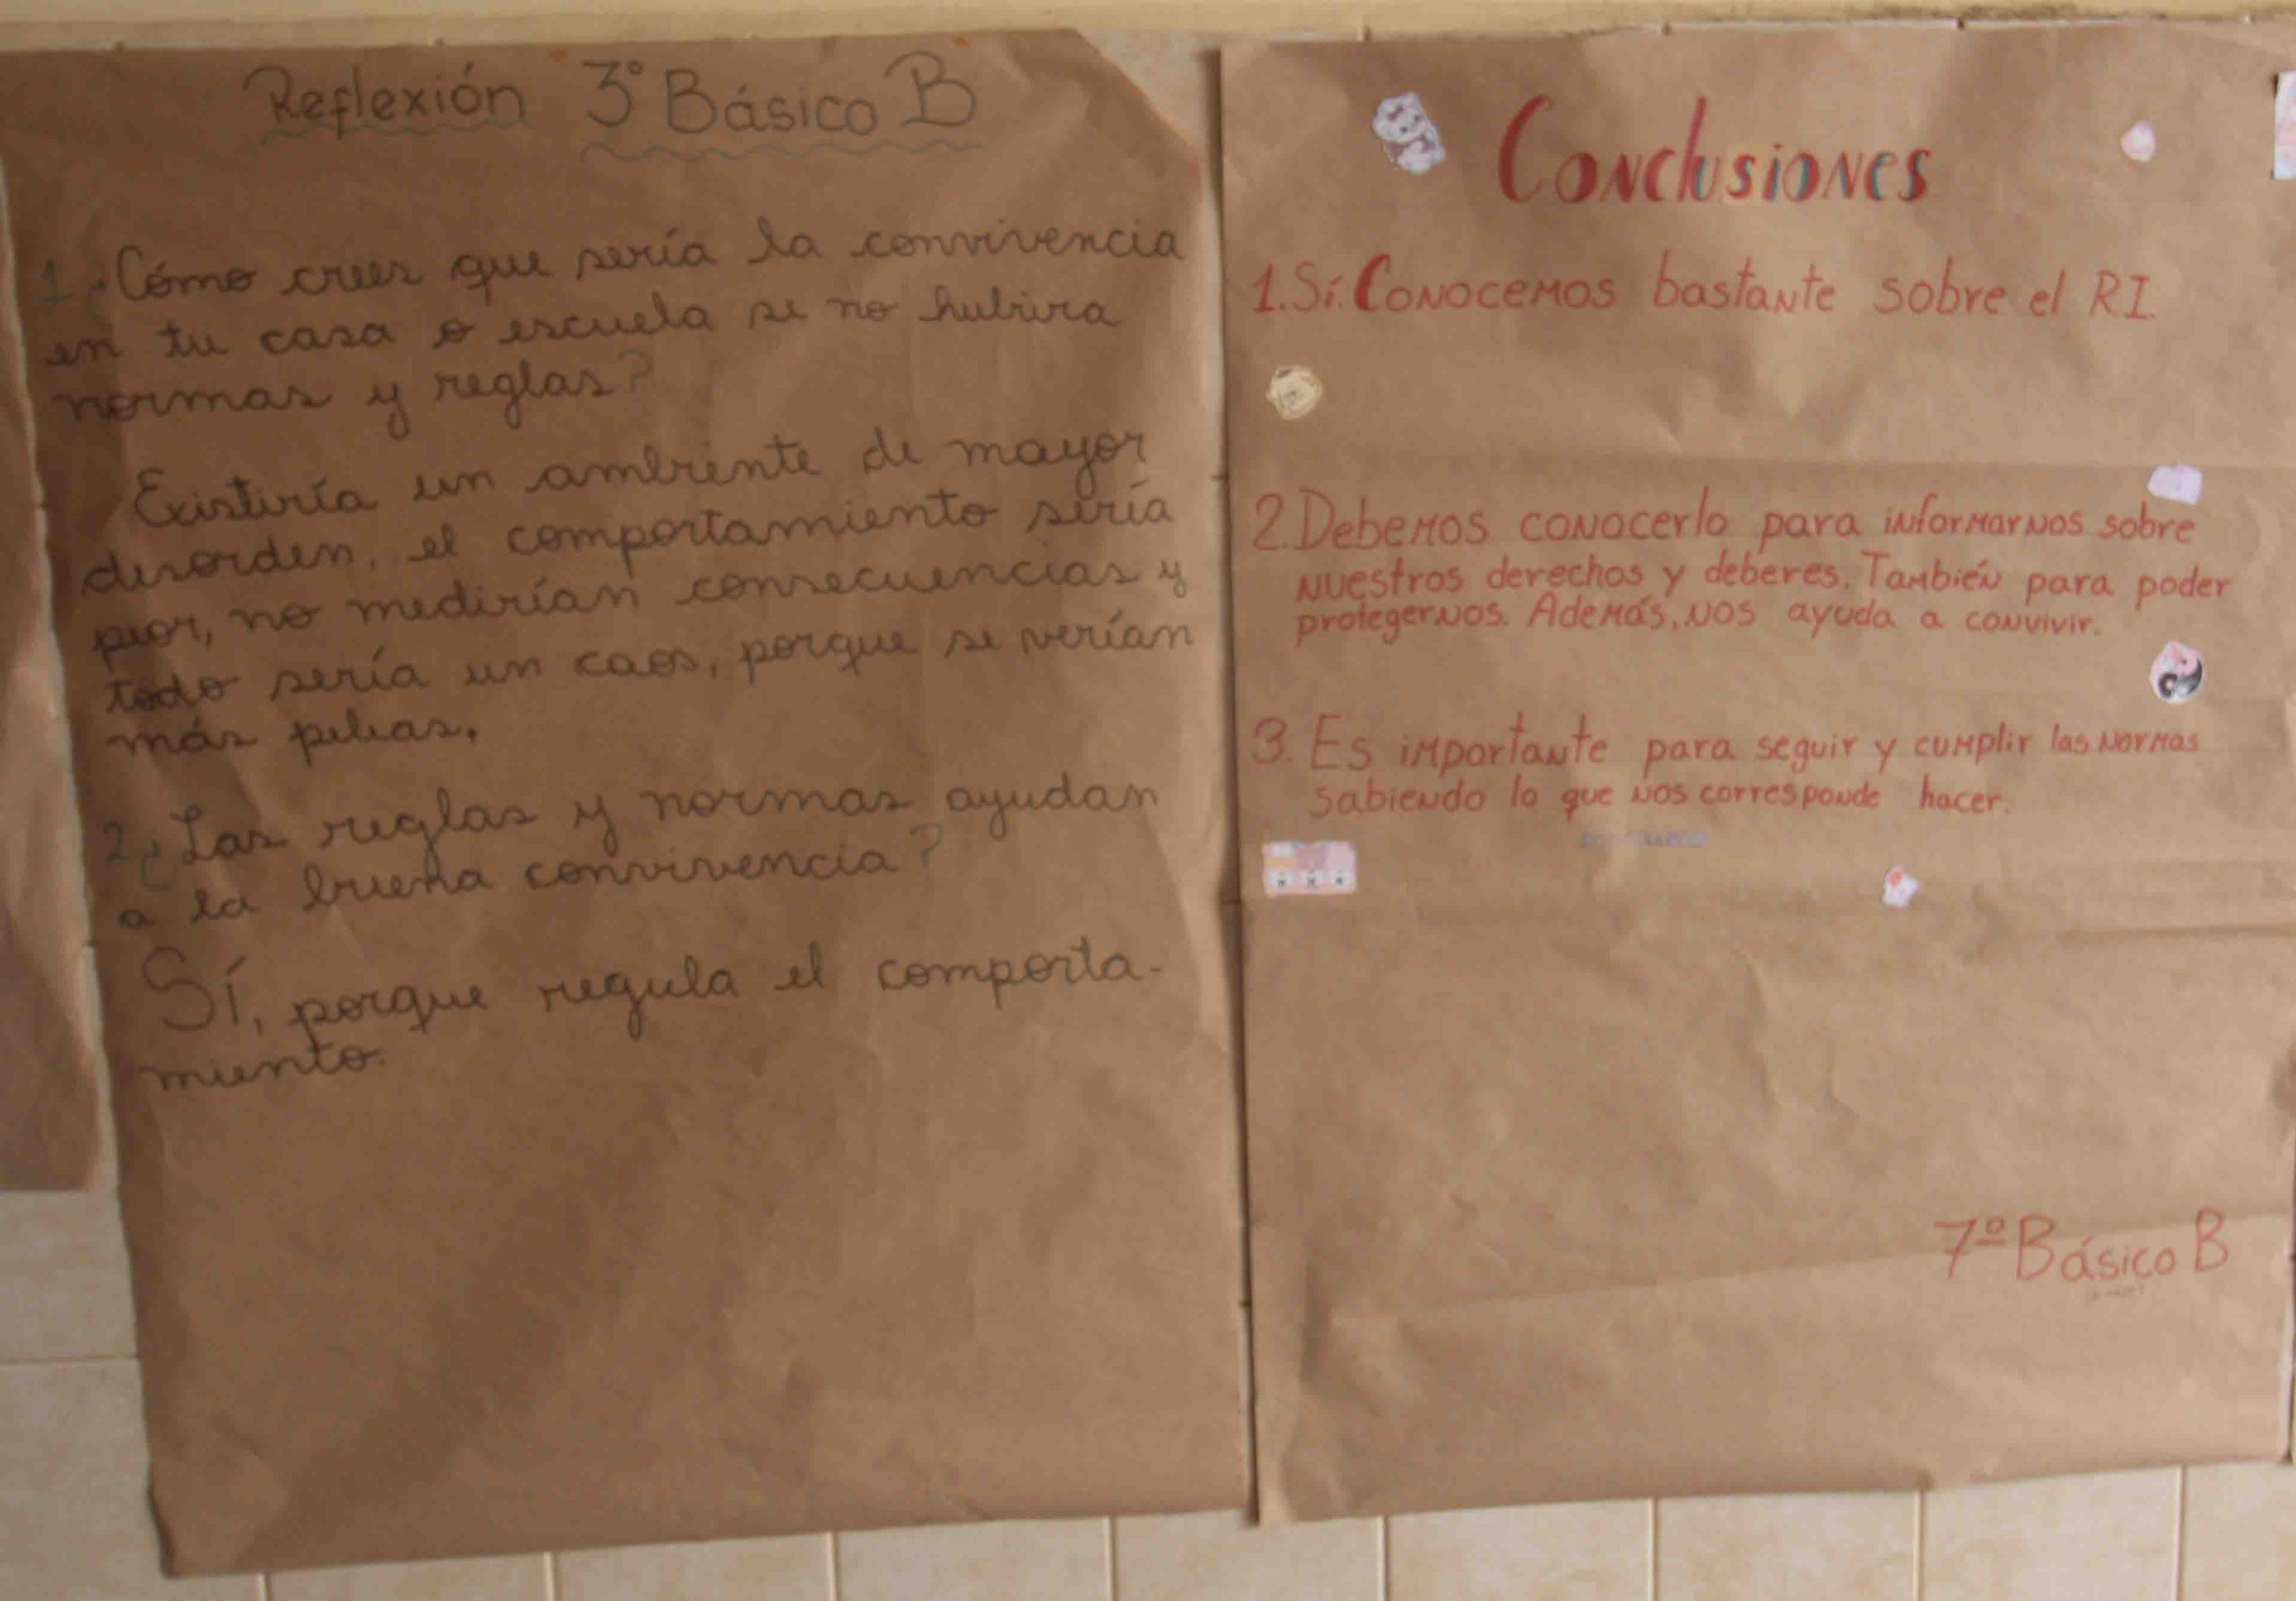 Reflexión 3° Básico B
1. ¿Cómo crees que sería la convivencia
en tu casa o escuela si no hubiera
normas y reglas?
Existiría un ambiente de mayor
desorden, el comportamiento sería
peor, no medirían consecuencias y
todo sería un caos, porque se verían
más peleas.
2. ¿Las reglas y normas ayudan
a la buena convivencia?
Sí, porque regula el comporta-
miento.
Conclusiones
1. Sí. Conocemos bastante sobre el RI.
2. Debemos conocerlo para informarnos sobre
nuestros derechos y deberes. También para poder
protegernos. Además, nos ayuda a convivir.
3. Es importante para seguir y cumplir las normas
sabiendo lo que nos corresponde hacer.
7º Básico B